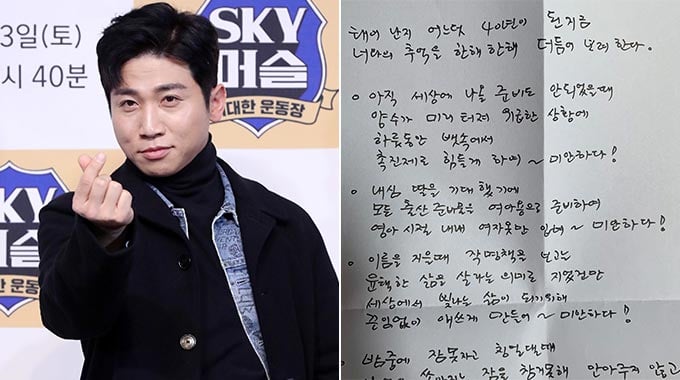 3일(토)
시 40분
SKY
머슬
대한 운동장
SKY
머슬
SKY
태어 난지 어느덧 40년이 된지금
너와의 추억을 한해 한해 더듬어 보려 한다.
o 아직 세상에 나올 준비도 안되었을때
양수가 미리 터져 위급한 상황에
하룻동안 뱃속에서
촉진제로 힘들게 하며 ~ 미안하다!
o 내심 딸을 기대했기에
모든 출산 준비물을 여아용으로 준비하여
영아 시절 내내 여자옷만 입혀 ~ 미안하다!
o 이름을 지을때 작명책을 보고는
윤택한 삶을 살라는 의미로 지었건만
세상에서 빛나는 삶이 되기위해
끈임없이 애쓰게 만들어 ~ 미안하다!
o 밤중에 잠못자고 칭얼댈때
잠을 참기못해 안아주지 않고